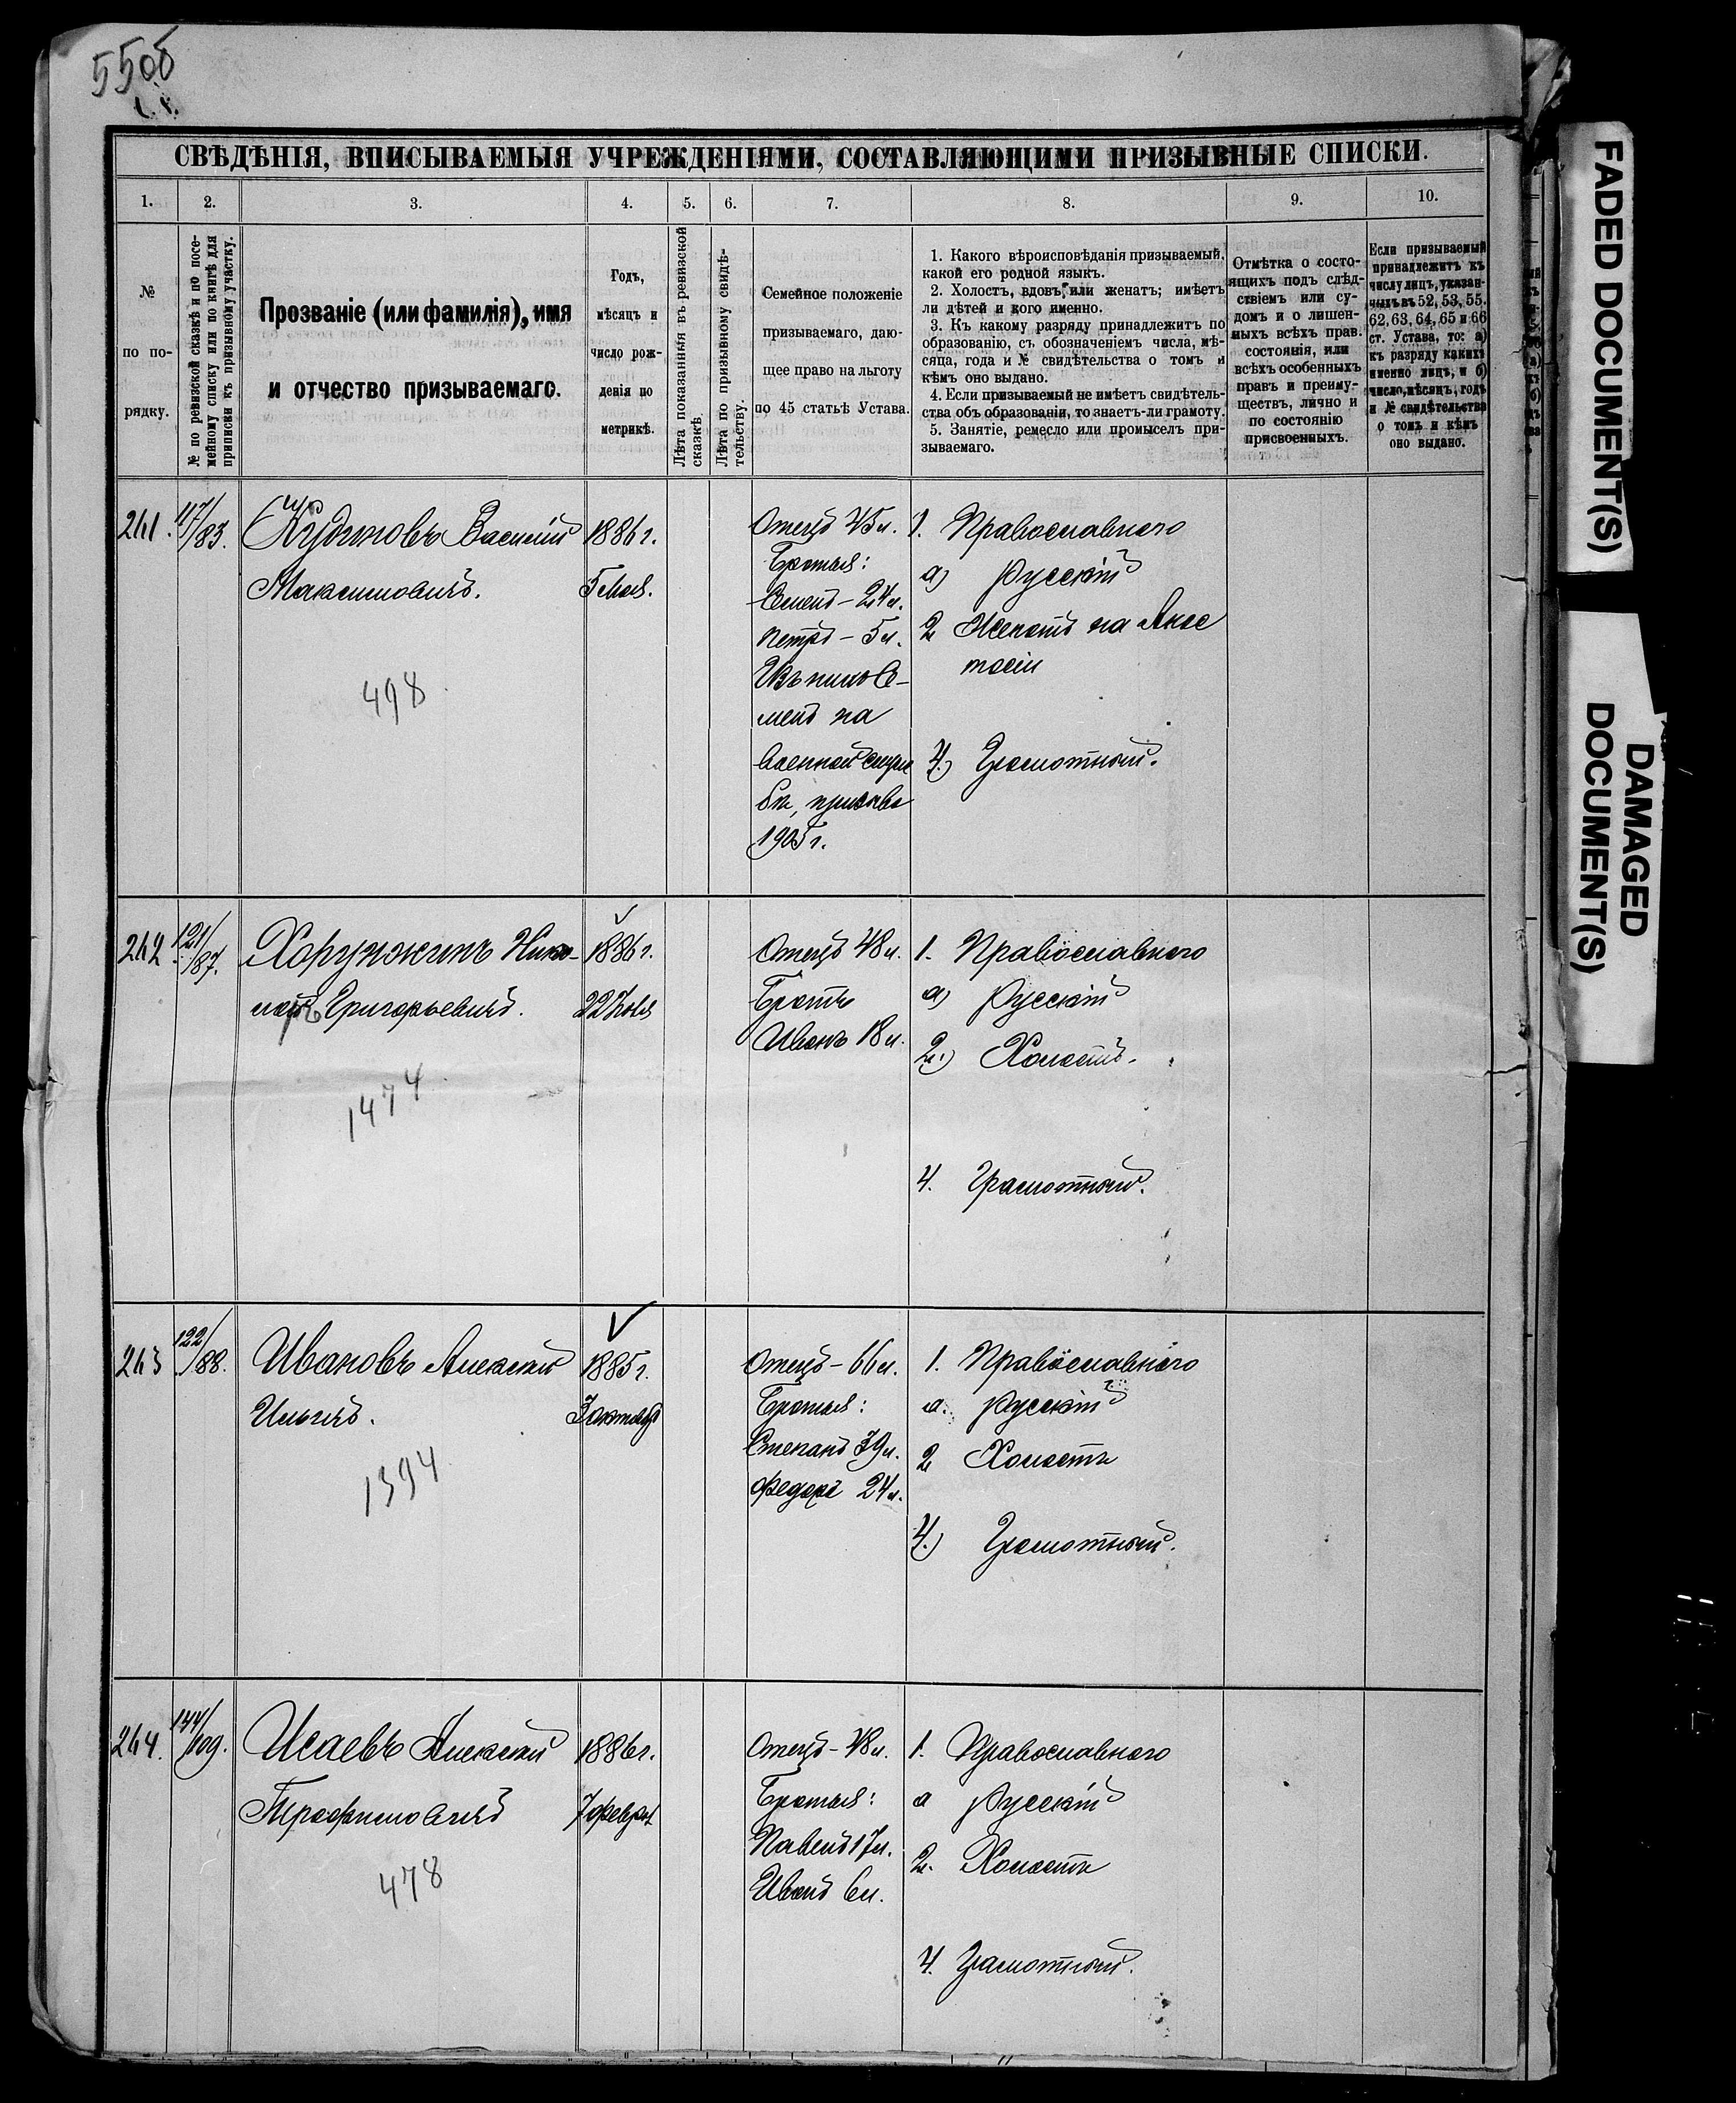 5505
СВѢДѢНІЯ, ВПИСЫВАЕМЫЯ УЧРЕЖДЕНІЯМИ, СОСТАВЛЯЮЩИМИ ПРИЗЫВНЫЕ СПИСКИ.
1. 2. 3. 4. 5. 6. 7. 8. 9. 10.
№
по по-
рядку.
№ по ревизской сказкѣ и по посе-
мейному списку или по книгѣ для
приписки къ призывному участку.
Прозваніе (или фамилія), имя
и отчество призываемаго.
Годъ,
мѣсяцъ и
число рож-
денія по
метрикѣ.
Лѣта показанныя въ ревизской
сказкѣ.
Лѣта по призывному свидѣ-
тельству.
Семейное положеніе
призываемаго, даю-
щее право на льготу
по 45 статьѣ Устава.
1. Какого вѣроисповѣданія призываемый,
какой его родной языкъ.
2. Холостъ, вдовъ, или женатъ; имѣетъ
ли дѣтей и кого именно.
3. Къ какому разряду принадлежитъ по
образованію, съ обозначеніемъ числа, мѣ-
сяца, года и № свидѣтельства о томъ и
кѣмъ оно выдано.
4. Если призываемый не имѣетъ свидѣтель-
ства объ образованіи, то знаетъ-ли грамоту.
5. Занятіе, ремесло или промыселъ при-
зываемаго.
Отмѣтка о состо-
ящихъ подъ слѣд-
ствіемъ или су-
домъ и о лишен-
ныхъ всѣхъ прав.
состоянія, или
всѣхъ особенныхъ
правъ и преиму-
ществъ, лично и
по состоянію
присвоенныхъ.
Если призываемый
принадлежитъ къ
числу лицъ, указан-
ныхъ въ 52, 53, 55.
62, 63, 64, 65 и 66
ст. Устава, то: а)
къ разряду какихъ
именно лицъ, и б)
число, мѣсяцъ, годъ
и № свидѣтельства
о томъ и кѣмъ
оно выдано.
241. 117/83.
Кудиновъ Василій
Максимовичъ.
498
1886 г.
5 Мая.
Отецъ 45 л.
Братья:
Семенъ – 24 л.
Петръ – 5 л.
Семенъ на
военной служ
бѣ, призыва
1905 г.
1. Православнаго
а) Русскій
2 Женатъ на Анас
тасіи
4.) Грамотный.
242 121/87.
Хорунжинъ Нико-
лай Григорьевичъ.
1474
1886 г.
22 Іюля
Отецъ 48 л.
Братъ
Иванъ 18 л.
1. Православнаго
а) Русскій
2.) Холостъ.
4. Грамотный.
243 122/88.
Ивановъ Алексѣй
Ильичъ.
1394
1885 г.
3 октября
Отецъ – 66 л.
Братья:
Степанъ 39 л.
Федоръ 24 л.
1. Православнаго
а. Русскій
2 Холостъ
4.) Грамотный.
244. 144/109.
Исаевъ Алексѣй
Трофимовичъ
478
1886 г.
7 Феврал
Отецъ – 48 л.
Братья:
Павелъ 17 л.
Иванъ 6 л.
1. Православнаго
а Русскій
2. Холостъ
4. Грамотный.
FADED DOCUMENT(S)
DAMAGED
DOCUMENT(S)